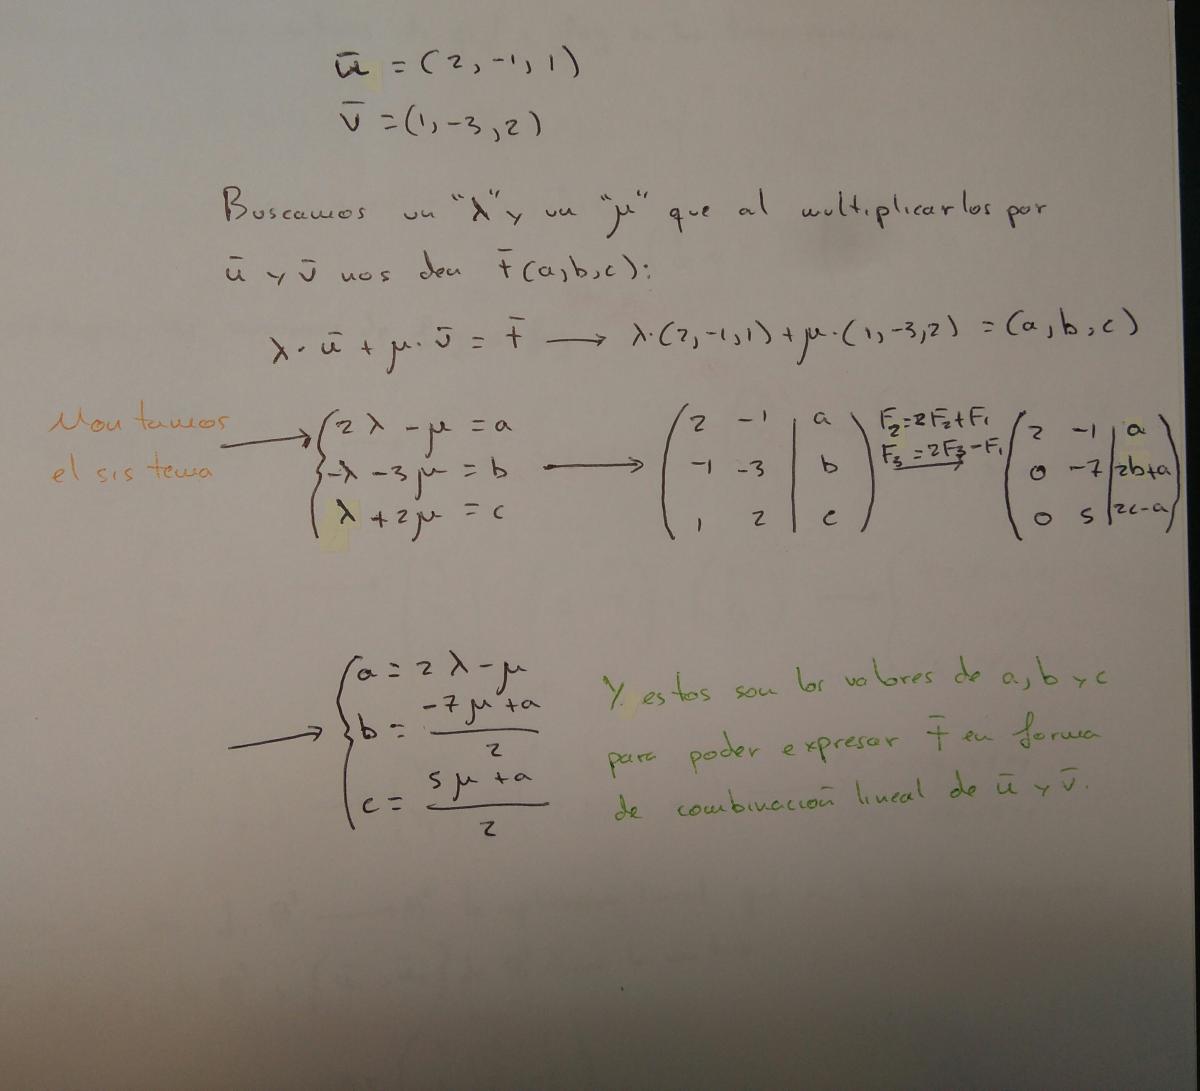 ū = (2, -1, 1)
v̄ = (1, -3, 2)
Buscamos un "λ" y un "μ" que al multiplicarlos por
ū y v̄ nos den t̄ (a,b,c):
λ · ū + μ · v̄ = t̄ → λ·(2,-1,1) + μ·(1,-3,2) = (a,b,c)
Montamos
el sistema
→ { 2λ - μ = a
-λ - 3μ = b
λ + 2μ = c
→ ( 2 -1 | a
-1 -3 | b
1 2 | c )
F₂=2F₂+F₁
F₃=2F₃-F₁
→ ( 2 -1 | a
0 -7 | 2b+a
0 5 | 2c-a )
→ { a = 2λ - μ
b = (-7μ + a)/2
c = (5μ + a)/2
Y estos son los valores de a, b y c
para poder expresar t̄ en forma
de combinación lineal de ū y v̄.